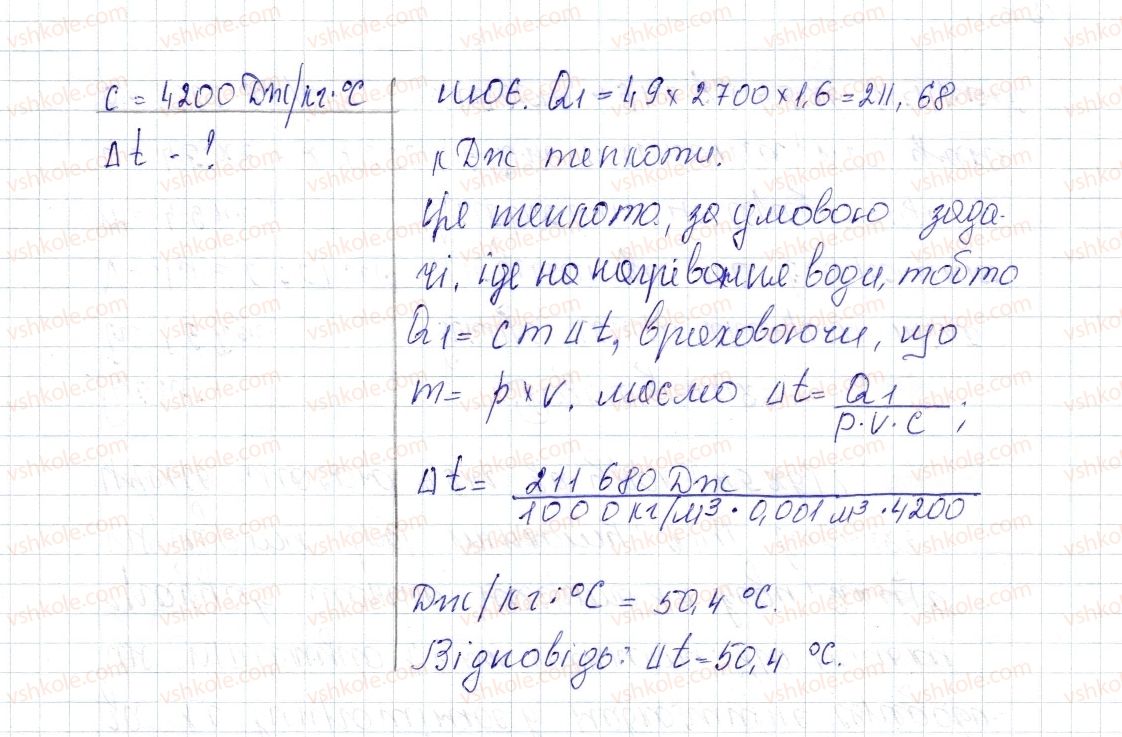 c = 4200 Дж/кг·°C
Δt - ?
шює. Q1 = 49 × 2700 × 1,6 = 211,68
кДж теплоти.
Ця теплота, за умовою зада-
чі, іде на нагрівання води, тобто
Q1 = cmΔt, враховуючи, що
m = p × V, маємо Δt = Q1 / p·V·c ;
Δt = 211 680 Дж / 1000 кг/м³ · 0,001 м³ · 4200
Дж/кг·°C = 50,4 °C.
Відповідь: Δt = 50,4 °C.
vshkole.com